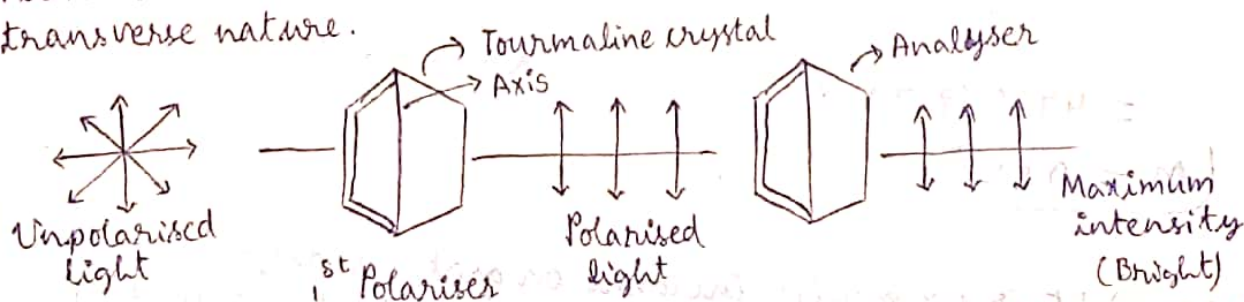 transverse nature.
Tourmaline crystal
Axis
Analyser
Unpolarised
light
1st Polariser
Polarised
light
Maximum
intensity
(Bright)